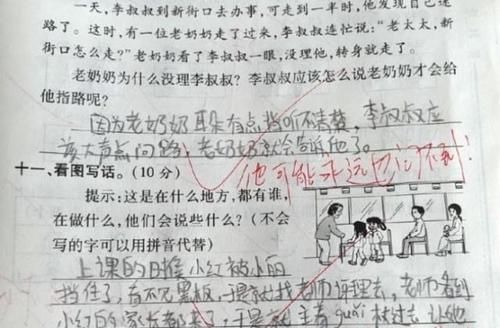 一天，李叔叔到新街口去办事，可走到一半时，他发现自己迷
路了。这时，有一位老奶奶走了过来，李叔叔连忙说：“老太太，新
街口怎么走？”老奶奶看了李叔叔一眼，没理他，转身就走了。
老奶奶为什么没理李叔叔？李叔叔应该怎么说老奶奶才会给
他指路呢？
因为老奶奶耳朵有点背听不清楚，李叔叔应
该大声点问路，老奶奶就会告诉他了。
他可能永远也问不到！
十一、看图写话。（10 分）
提示：这是在什么地方，都有谁，
在做什么，他们会说些什么？（不会
写的字可以用拼音代替）
上课的时候小红被小
挡住了，看不见黑板，于是就找老师评理去，老师看到
小红的家长都来了，于是就主着guǎi杖过去，让他